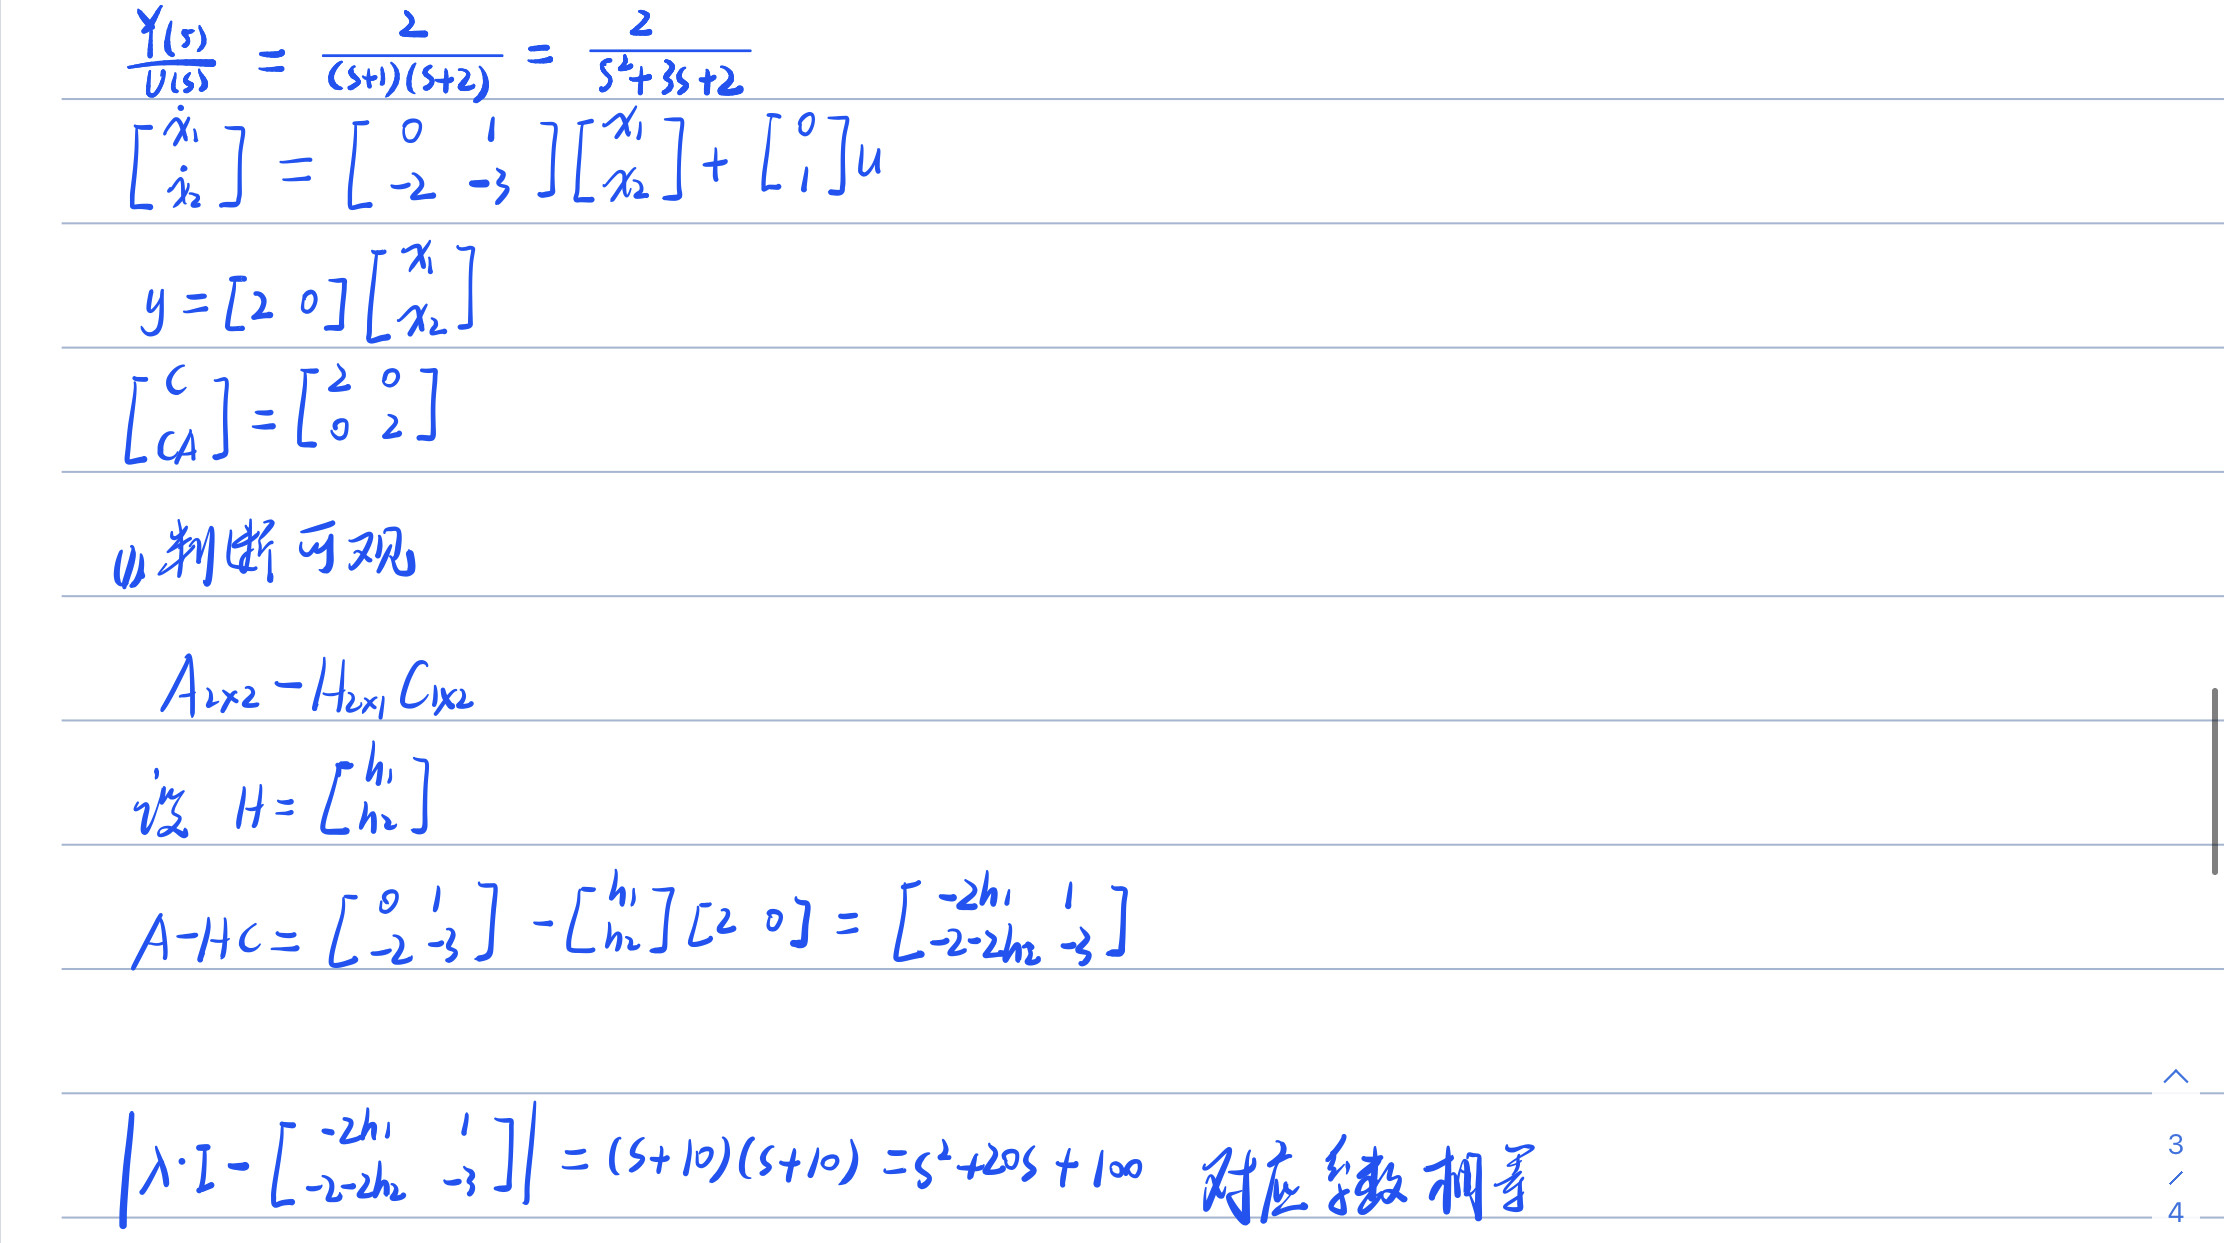 Y(s)/U(s) = 2/((s+1)(s+2)) = 2/(s²+3s+2)
[ẋ₁; ẋ₂] = [0 1; -2 -3][x₁; x₂] + [0; 1]u
y = [2 0][x₁; x₂]
[C; CA] = [2 0; 0 2]
(1) 判断可观
A₂ₓ₂ - H₂ₓ₁ C₁ₓ₂
设 H = [h₁; h₂]
A-HC = [0 1; -2 -3] - [h₁; h₂][2 0] = [-2h₁ 1; -2-2h₂ -3]
|λ·I - [-2h₁ 1; -2-2h₂ -3]| = (s+10)(s+10) = s²+20s+100 对应系数相等
3
/
4